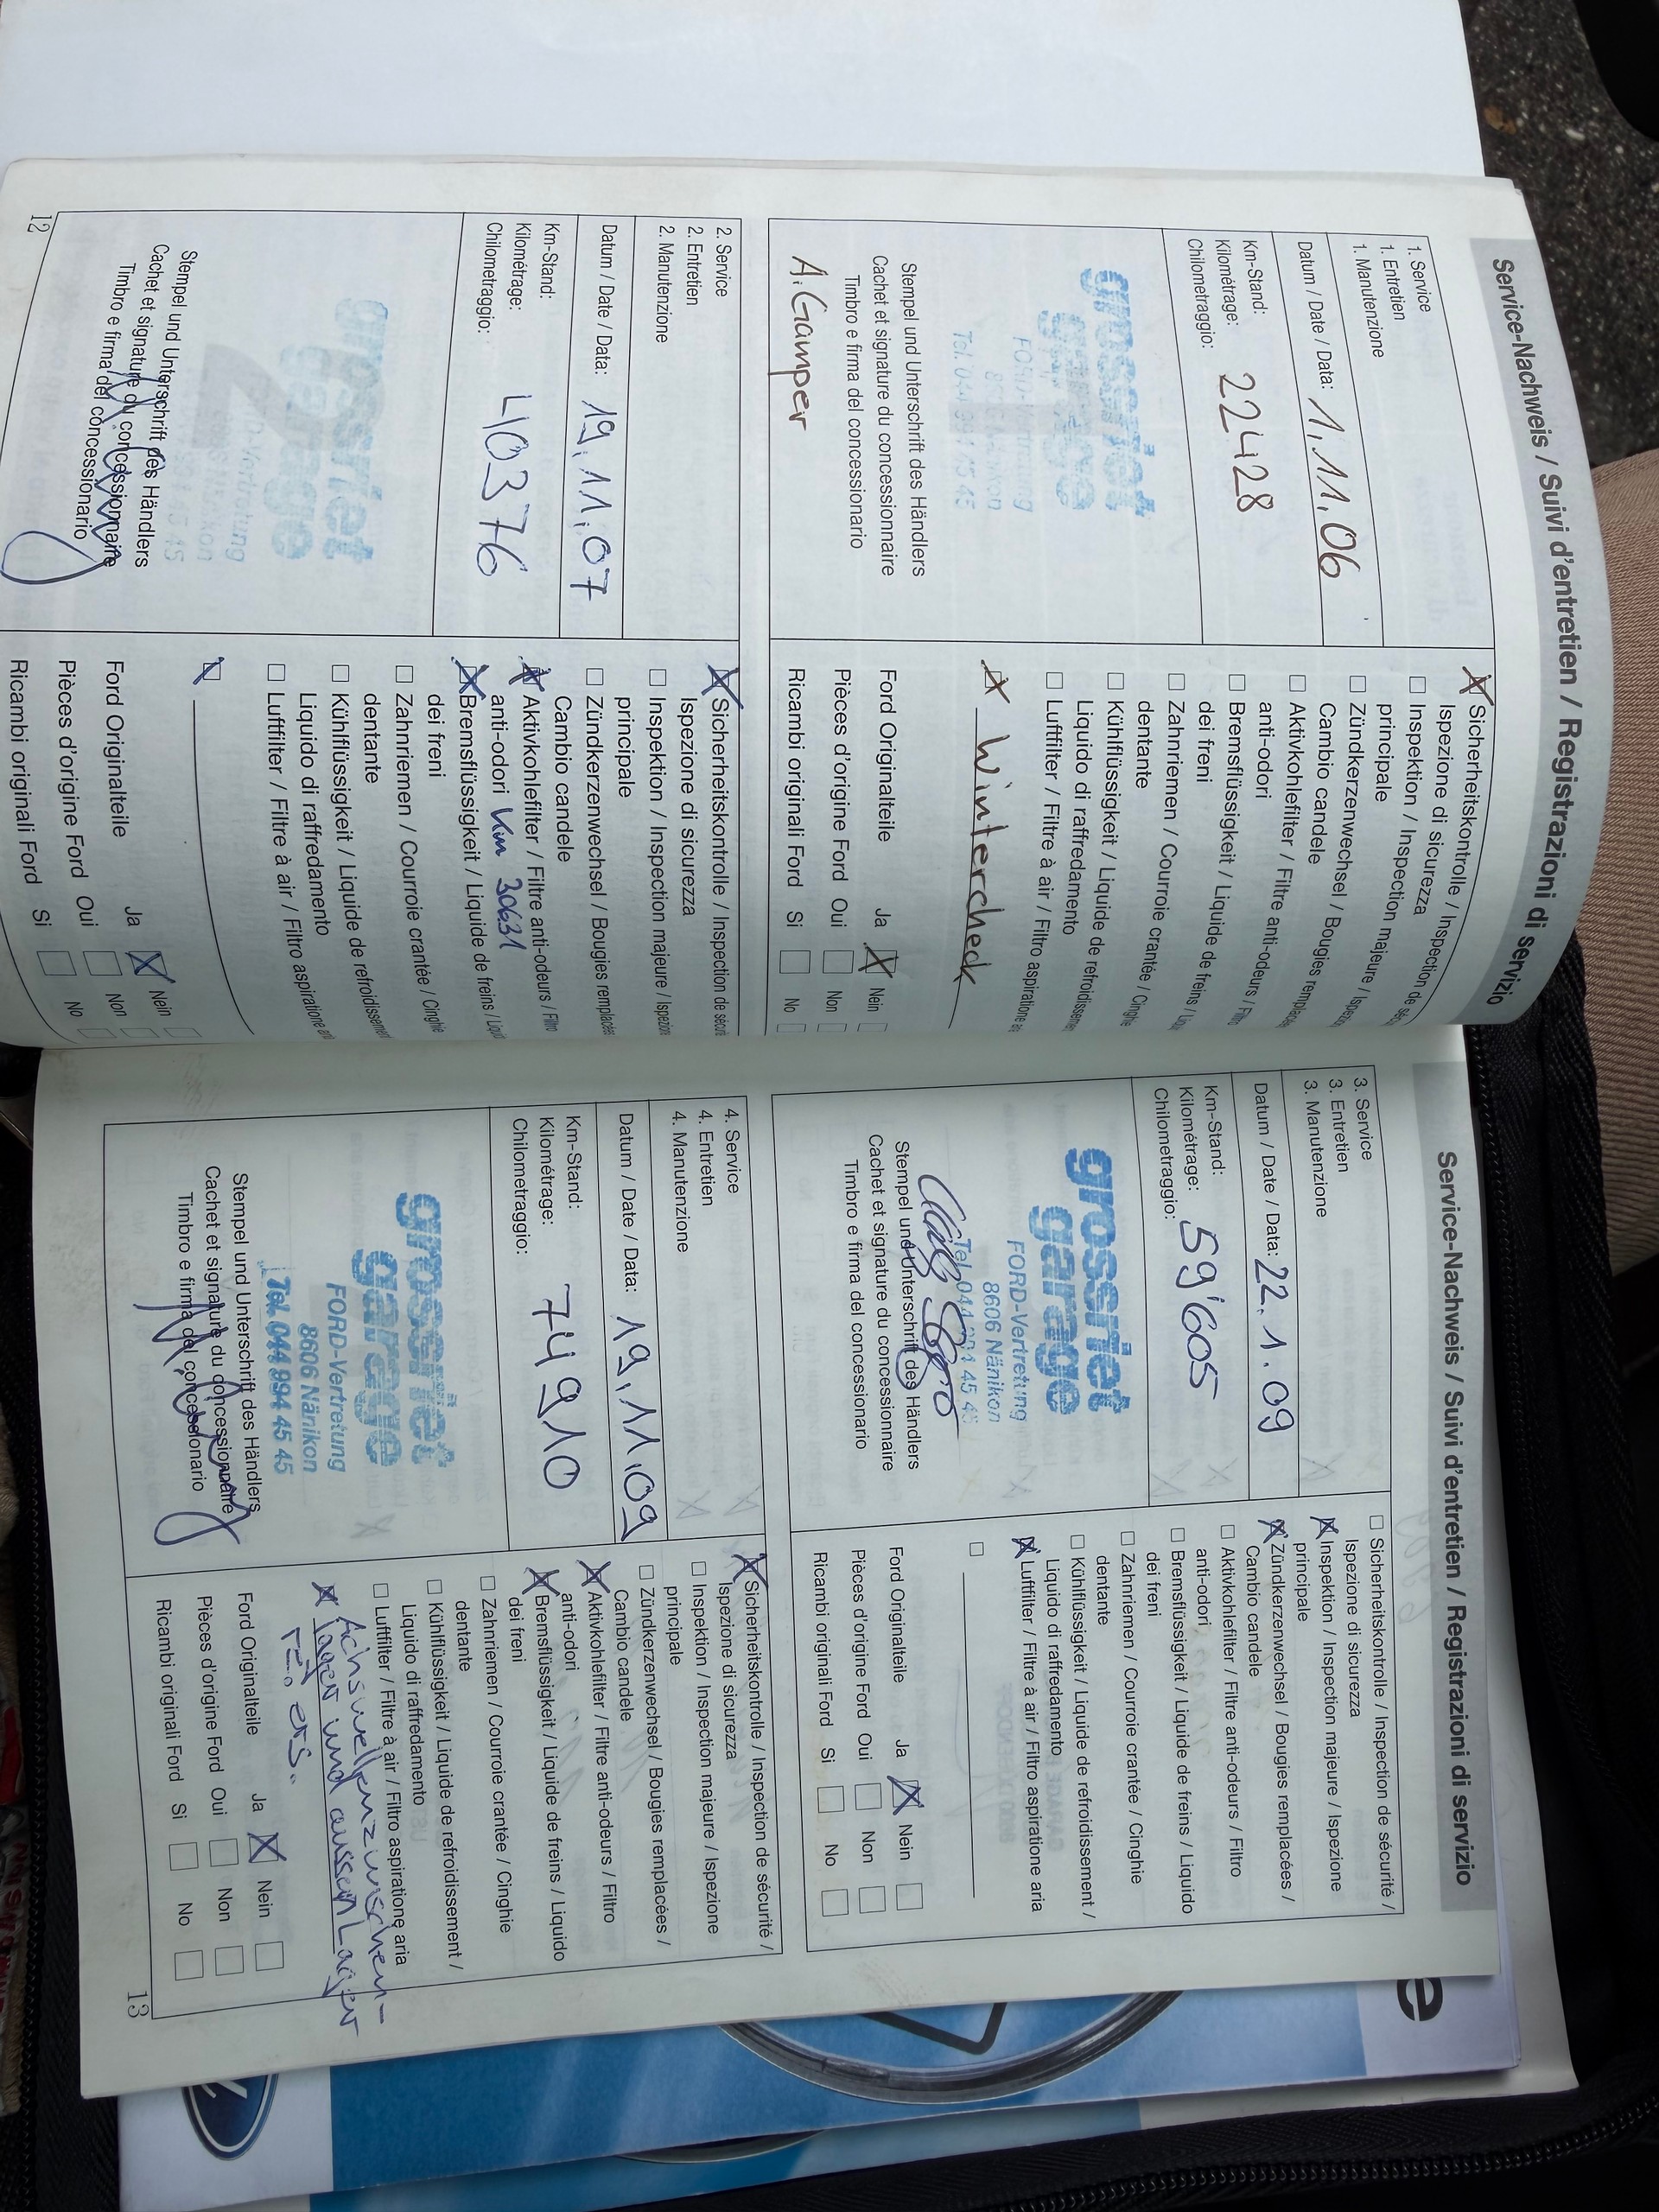 Service-Nachweis / Suivi d'entretien / Registrazioni di servizio
1. Service
1. Entretien
1. Manutenzione
Datum / Date / Data: 1.11.06
Km-Stand:
Kilométrage: 22428
Chilometraggio:
grossriet
garage
Tel. 044 994 45 45
Stempel und Unterschrift des Händlers
Cachet et signature du concessionnaire
Timbro e firma del concessionario
A. Gamper
Sicherheitskontrolle / Inspection de séc
Ispezione di sicurezza
Inspektion / Inspection majeure / Ispezi
principale
Zündkerzenwechsel / Bougies remplacé
Cambio candele
Aktivkohlefilter / Filtre anti-odeurs / Filtro
anti-odori
Bremsflüssigkeit / Liquide de freins / Liqu
dei freni
Zahnriemen / Courroie crantée / Cinghie
dentante
Kühlflüssigkeit / Liquide de refroidissemen
Liquido di raffredamento
Luftfilter / Filtre à air / Filtro aspiratione a
Wintercheck
Ford Originalteile Ja Nein
Pièces d'origine Ford Oui Non
Ricambi originali Ford Si No
2. Service
2. Entretien
2. Manutenzione
Datum / Date / Data: 19.11.07
Km-Stand:
Kilométrage: 40376
Chilometraggio:
Stempel und Unterschrift des Händlers
Cachet et signature du concessionnaire
Timbro e firma del concessionario
Sicherheitskontrolle / Inspection de sécur
Ispezione di sicurezza
Inspektion / Inspection majeure / Ispezion
principale
Zündkerzenwechsel / Bougies remplacée
Cambio candele
Aktivkohlefilter / Filtre anti-odeurs / Filtro
anti-odori Km 30631
Bremsflüssigkeit / Liquide de freins / Liqu
dei freni
Zahnriemen / Courroie crantée / Cinghie
dentante
Kühlflüssigkeit / Liquide de refroidissement
Liquido di raffredamento
Luftfilter / Filtre à air / Filtro aspiratione ari
Ford Originalteile Ja Nein
Pièces d'origine Ford Oui Non
Ricambi originali Ford Si No
12
Service-Nachweis / Suivi d'entretien / Registrazioni di servizio
3. Service
3. Entretien
3. Manutenzione
Datum / Date / Data: 22.1.09
Km-Stand:
Kilométrage: 59'605
Chilometraggio:
grossriet
garage
FORD-Vertretung
8606 Nänikon
Tel. 044 994 45 45
Stempel und Unterschrift des Händlers
Cachet et signature du concessionnaire
Timbro e firma del concessionario
Sicherheitskontrolle / Inspection de sécurité /
Ispezione di sicurezza
Inspektion / Inspection majeure / Ispezione
principale
Zündkerzenwechsel / Bougies remplacées /
Cambio candele
Aktivkohlefilter / Filtre anti-odeurs / Filtro
anti-odori
Bremsflüssigkeit / Liquide de freins / Liquido
dei freni
Zahnriemen / Courroie crantée / Cinghie
dentante
Kühlflüssigkeit / Liquide de refroidissement /
Liquido di raffredamento
Luftfilter / Filtre à air / Filtro aspiratione aria
Ford Originalteile Ja Nein
Pièces d'origine Ford Oui Non
Ricambi originali Ford Si No
4. Service
4. Entretien
4. Manutenzione
Datum / Date / Data: 19.11.09
Km-Stand:
Kilométrage: 74910
Chilometraggio:
grossriet
garage
FORD-Vertretung
8606 Nänikon
Tel. 044 994 45 45
Stempel und Unterschrift des Händlers
Cachet et signature du concessionnaire
Timbro e firma del concessionario
Sicherheitskontrolle / Inspection de sécurité /
Ispezione di sicurezza
Inspektion / Inspection majeure / Ispezione
principale
Zündkerzenwechsel / Bougies remplacées /
Cambio candele
Aktivkohlefilter / Filtre anti-odeurs / Filtro
anti-odori
Bremsflüssigkeit / Liquide de freins / Liquido
dei freni
Zahnriemen / Courroie crantée / Cinghie
dentante
Kühlflüssigkeit / Liquide de refroidissement /
Liquido di raffredamento
Luftfilter / Filtre à air / Filtro aspiratione aria
Achswellenzwischen-
lager und aussen Lager
ers.
Ford Originalteile Ja Nein
Pièces d'origine Ford Oui Non
Ricambi originali Ford Si No
13